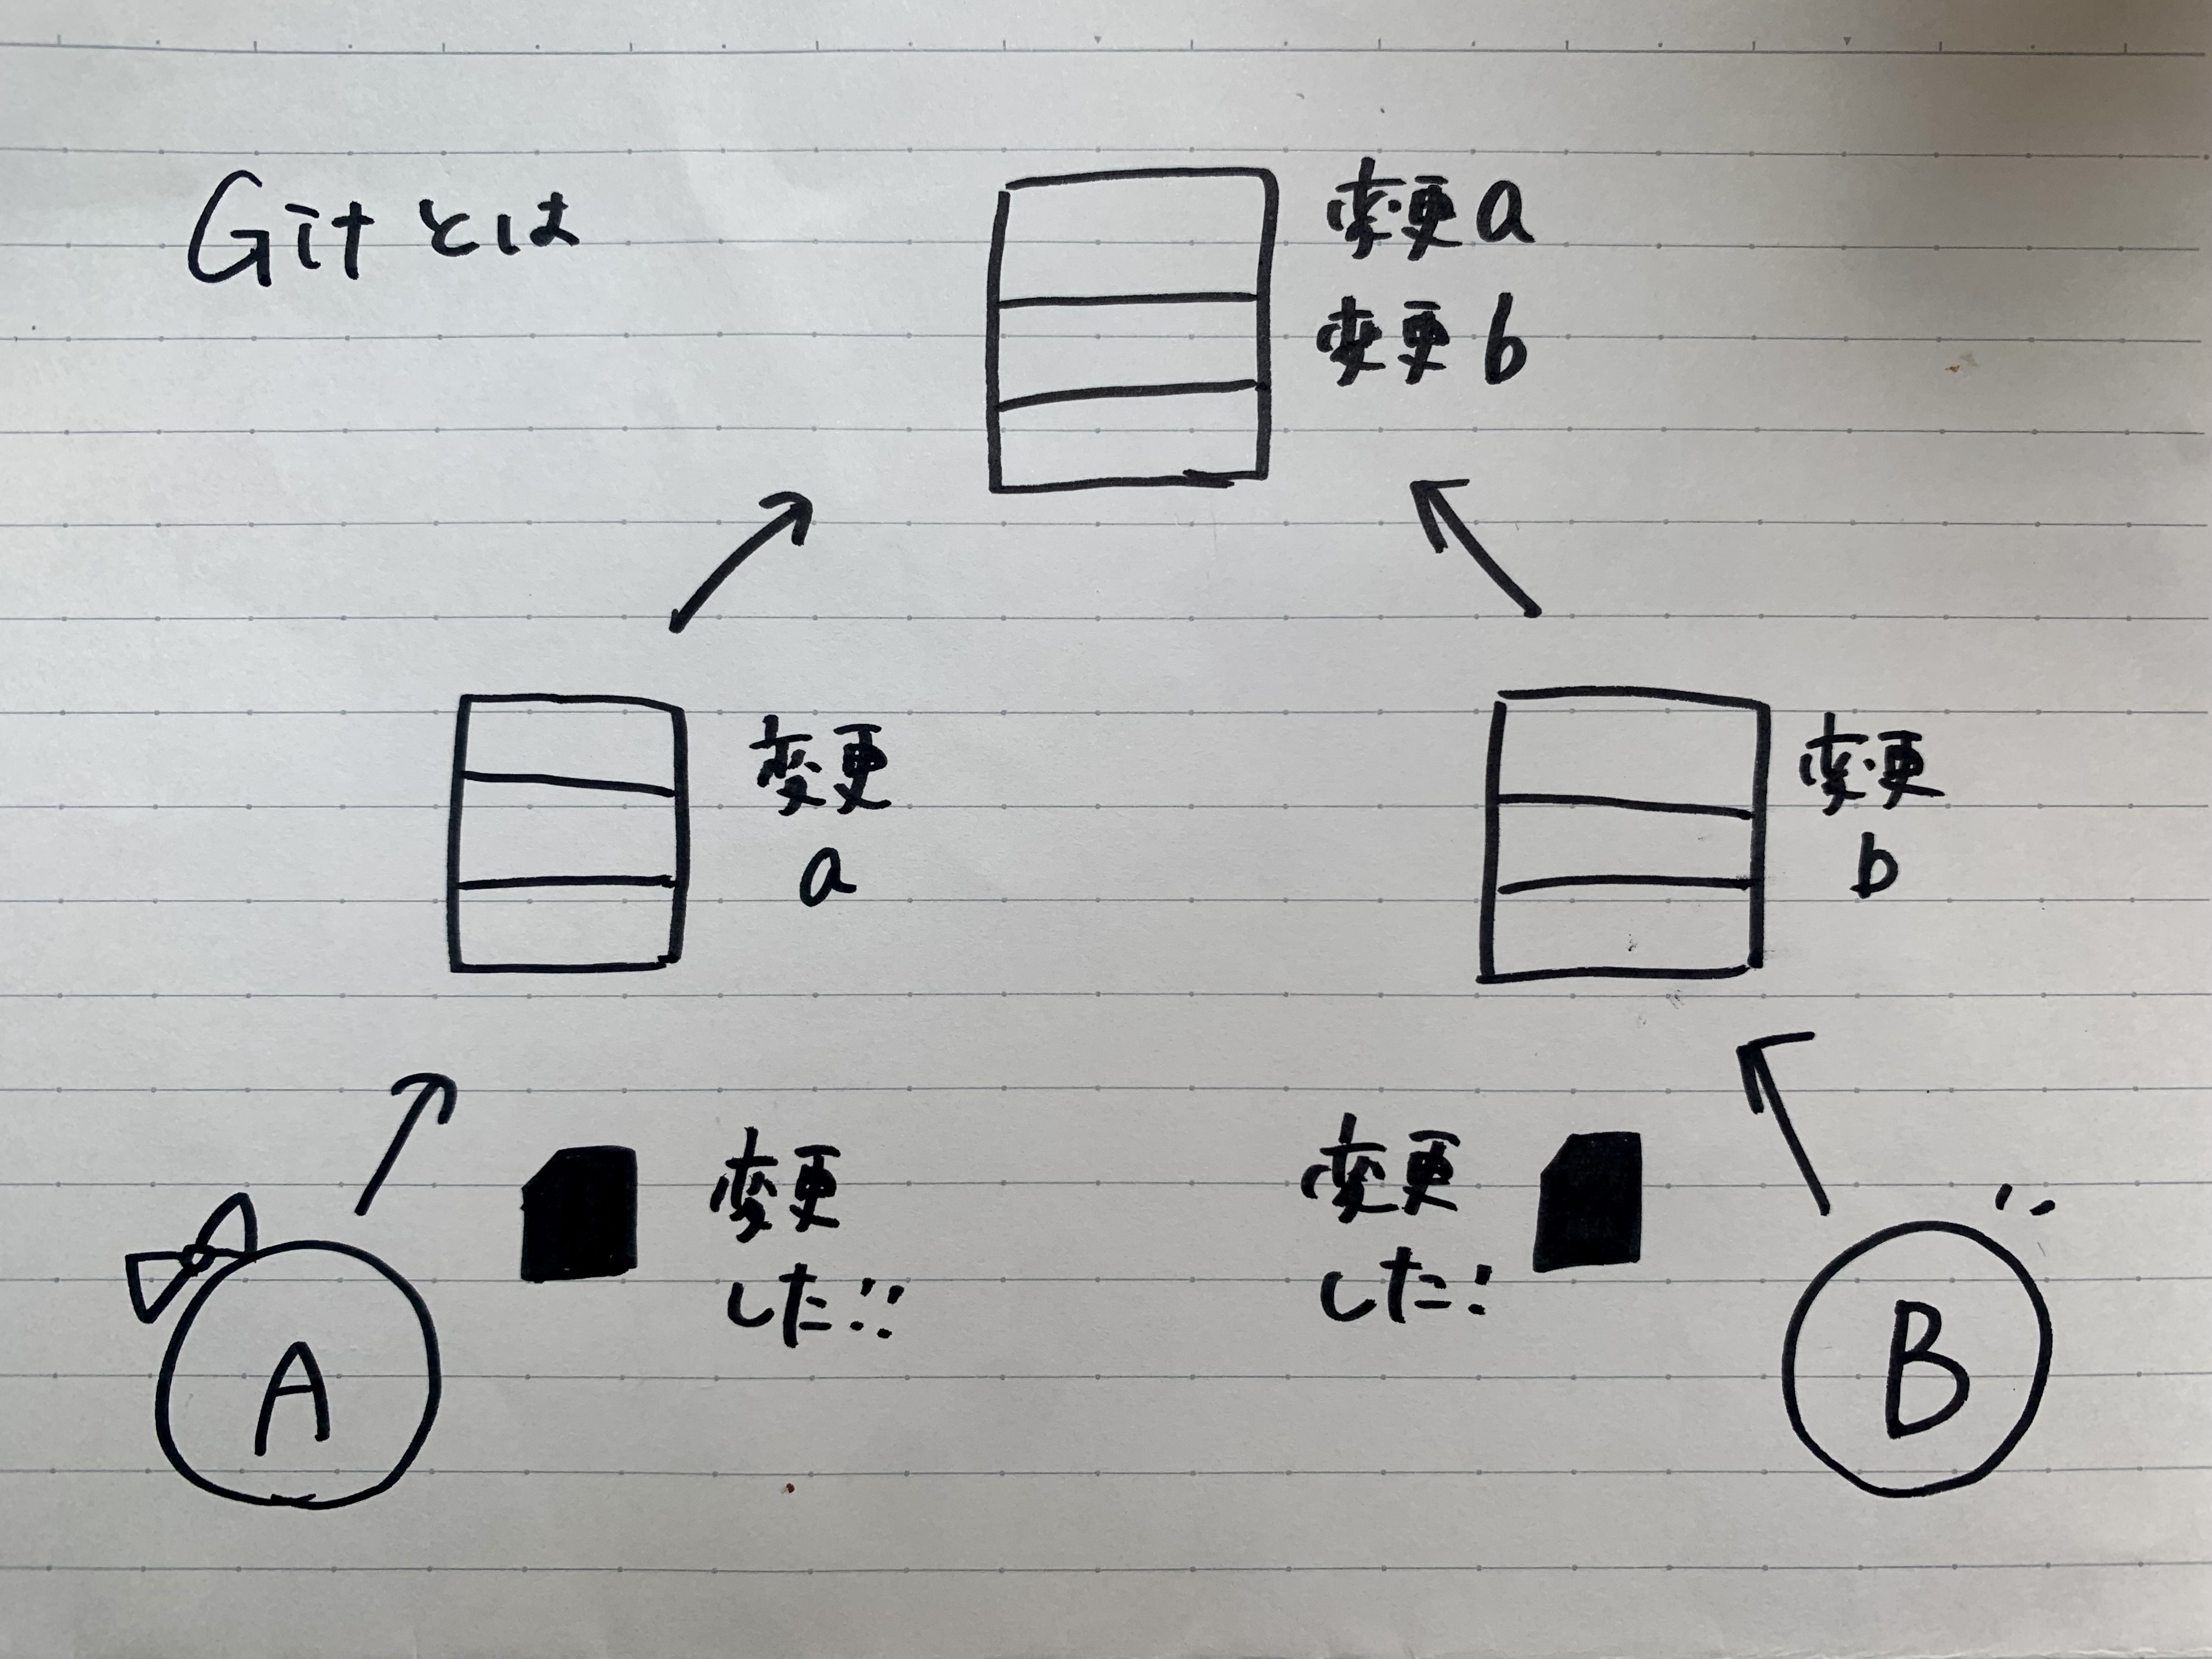 Gitとは
変更a
変更b
変更
a
変更
b
変更
した!!
変更
した!
A
B